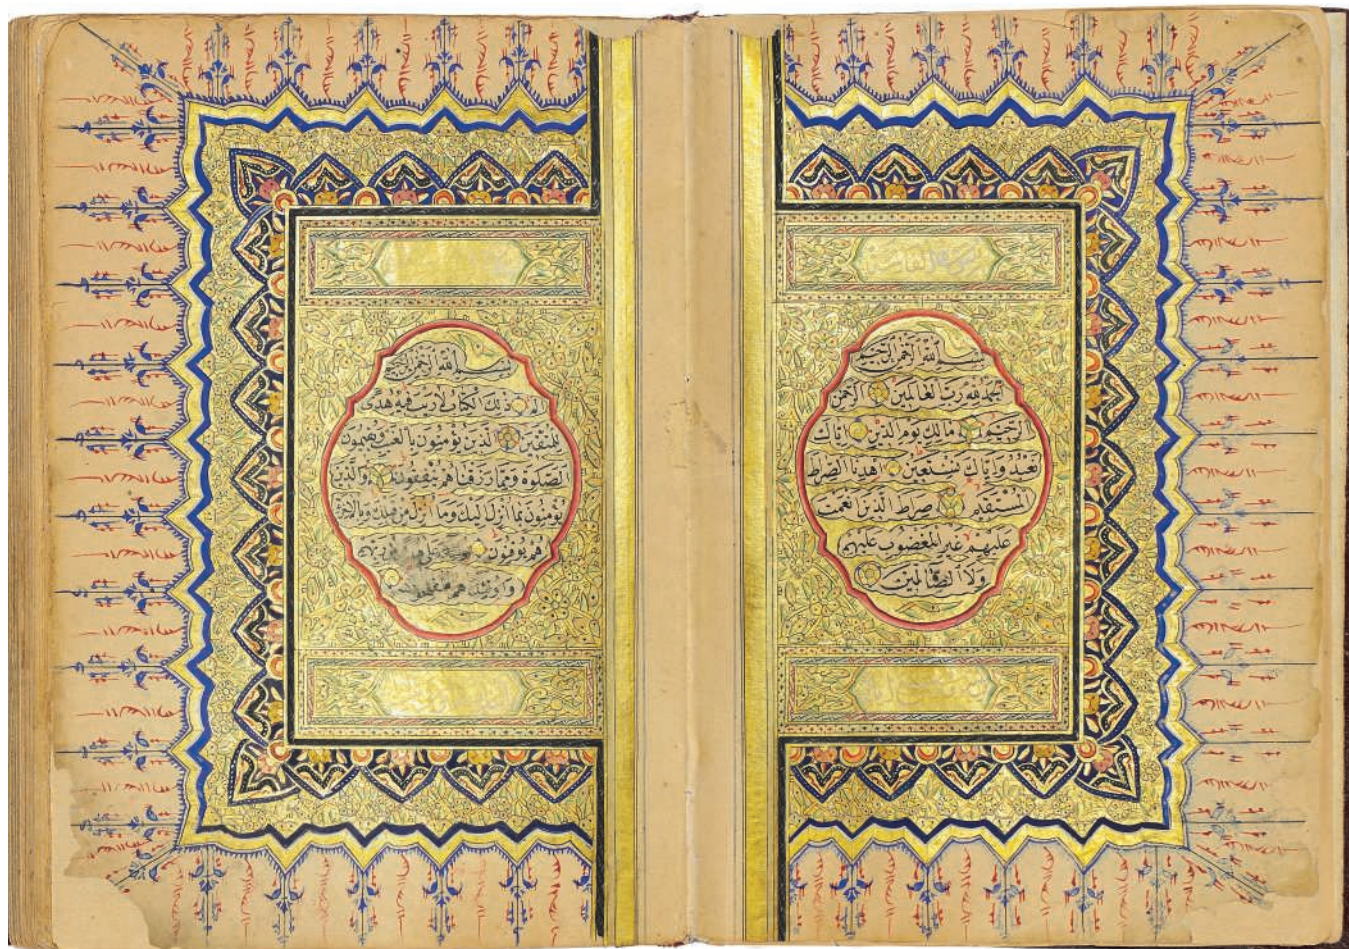 بسم الله الرحمن الرحيم
الحمد لله رب العالمين الرحمن
الرحيم مالك يوم الدين اياك
نعبد واياك نستعين اهدنا الصراط
المستقيم صراط الذين انعمت
عليهم غير المغضوب عليهم
ولا الضالين
بسم الله الرحمن الرحيم
الم ذلك الكتاب لا ريب فيه هدى
للمتقين الذين يؤمنون بالغيب ويقيمون
الصلوة ومما رزقناهم ينفقون والذين
يؤمنون بما انزل اليك وما انزل من قبلك وبالاخرة
هم يوقنون
واولئك هم المفلحون